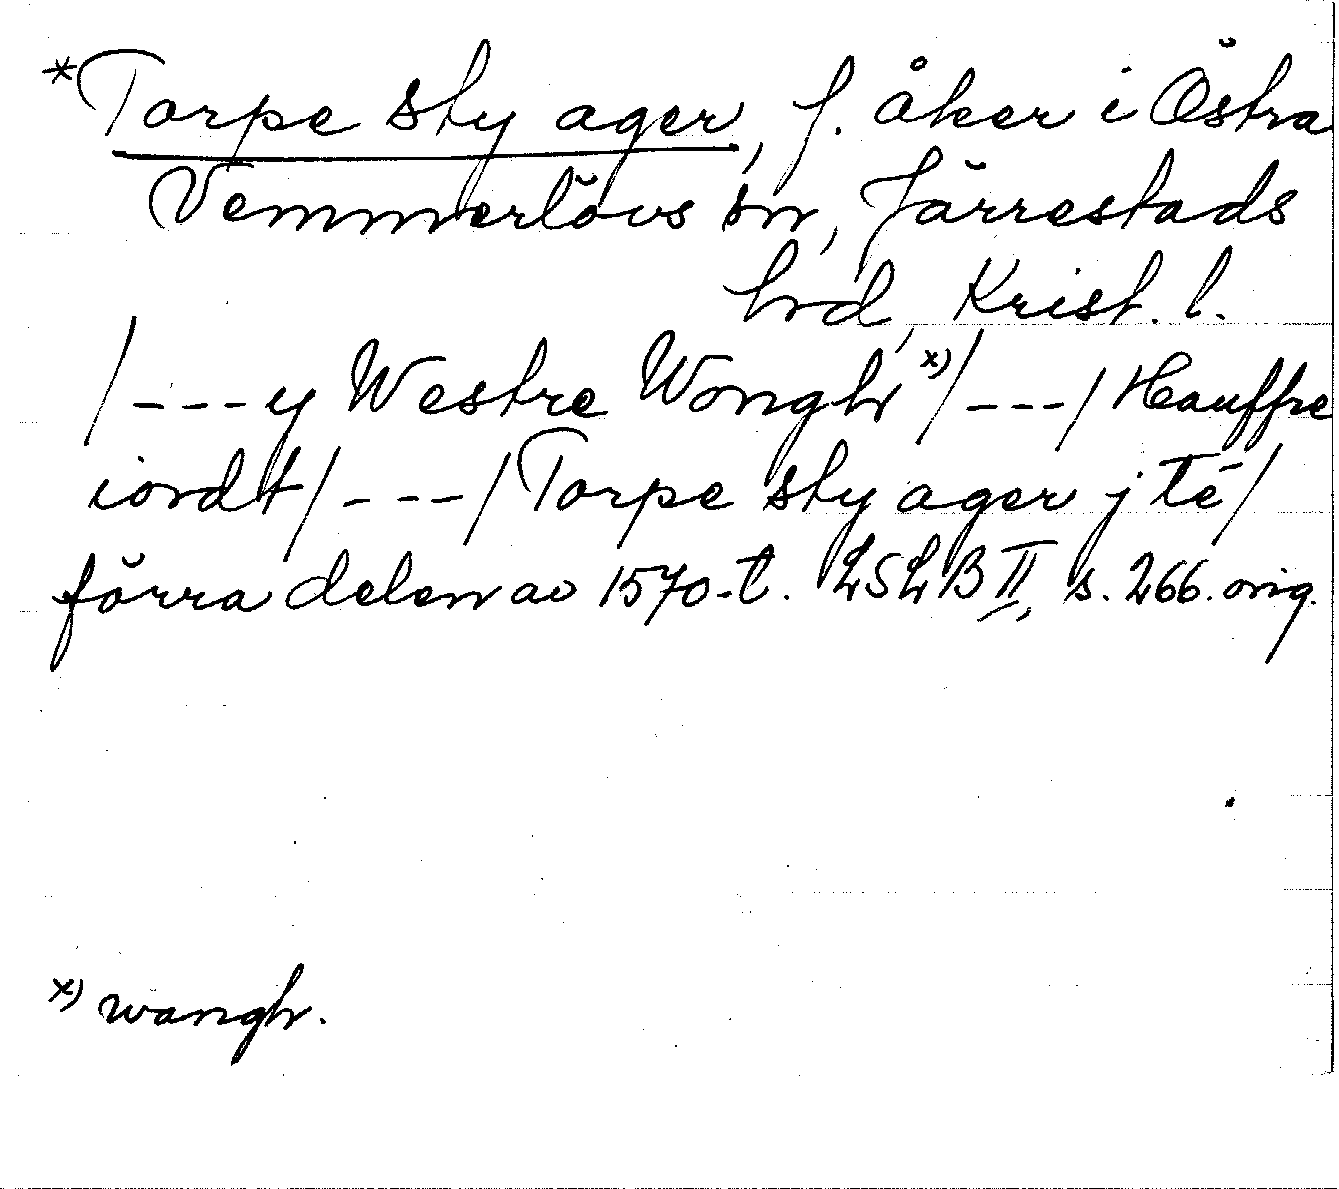 *Torpe sty ager, f. åker i Östra
Vemmerlövs sn, Järrestads
hrd, Krist. l.
/---y Westre Wongh x)/---/ Hauffre
iordt/---/Torpe sty ager j tē/
förra delen av 1570-t. LSLB II, s. 266. orig.
x) wangh.